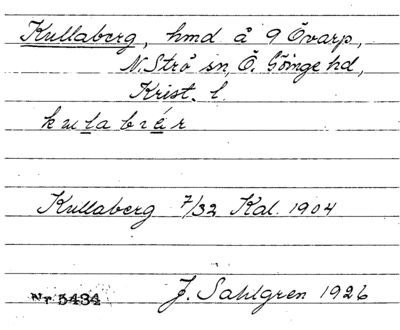 Kullaberg, hmd å 9 Övarp,
N. Strö sn, Ö. Göinge hd,
Krist. l.
Kullaberg 7/32 Kal. 1904
Nr 5434 J. Sahlgren 1926